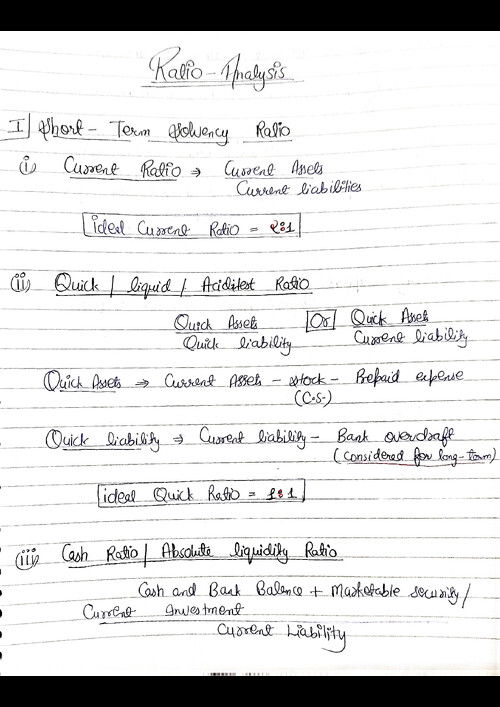 Ratio - Analysis
I] Short - Term Solvency Ratio
i) Current Ratio ⇒ Current Assets
Current liabilities
ideal Current Ratio = 2:1
ii) Quick / liquid / Aciditest Ratio
Quick Assets [Or] Quick Assets
Quick liability Current liability
Quick Assets ⇒ Current Assets - stock - Prepaid expense
(C.S.)
Quick liability ⇒ Current liability - Bank overdraft
(considered for long-term)
ideal Quick Ratio = 1:1
iii) Cash Ratio / Absolute liquidity Ratio
Cash and Bank Balence + Marketable security /
Current Investment
Current Liability